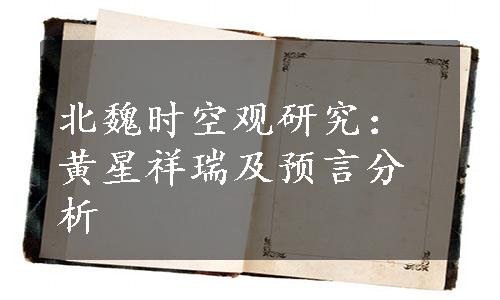 北魏时空观研究：
黄星祥瑞及预言分
析